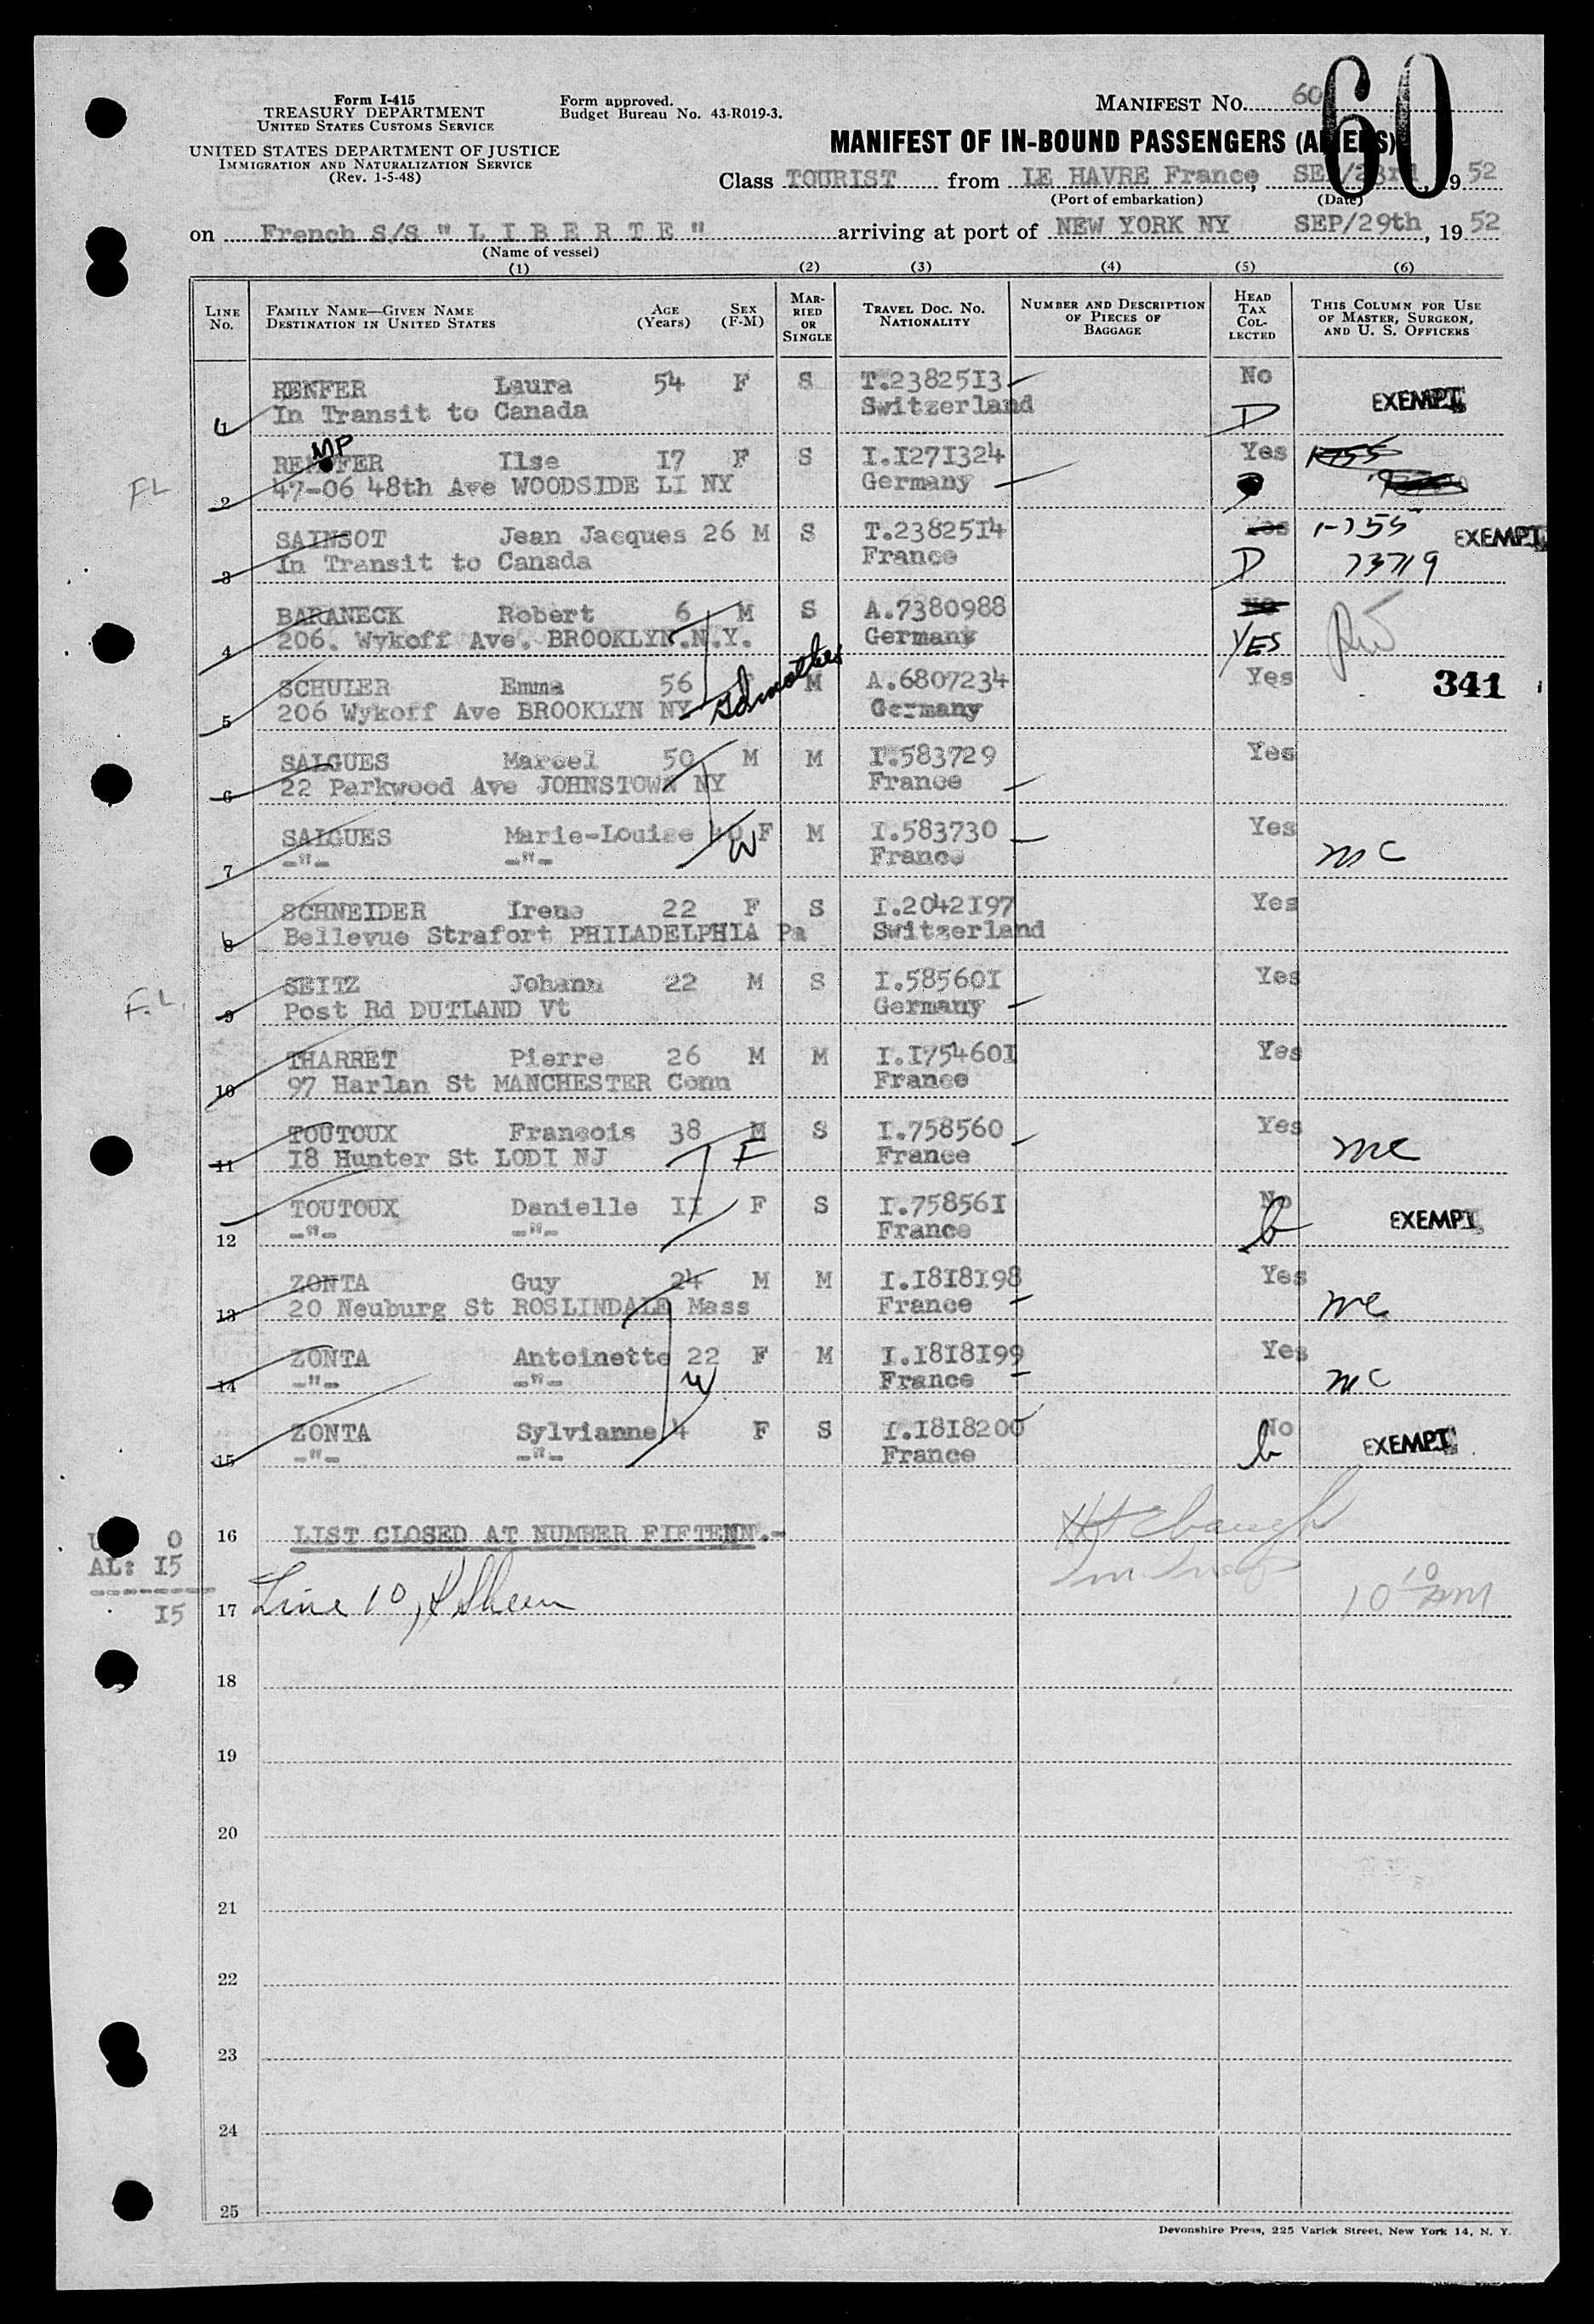 Form I-415
TREASURY DEPARTMENT
UNITED STATES CUSTOMS SERVICE
UNITED STATES DEPARTMENT OF JUSTICE
IMMIGRATION AND NATURALIZATION SERVICE
(Rev. 1-5-48)
Form approved.
Budget Bureau No. 43-R019-3.
MANIFEST NO. 60
60
MANIFEST OF IN-BOUND PASSENGERS (ALIENS)
Class TOURIST from LE HAVRE France, SEP/23rd, 1952
(Port of embarkation) (Date)
on French S/S " L I B E R T E " arriving at port of NEW YORK NY SEP/29th, 1952
(Name of vessel)
(1) (2) (3) (4) (5) (6)
LINE NO. FAMILY NAME—GIVEN NAME DESTINATION IN UNITED STATES AGE (Years) SEX (F-M) MARRIED OR SINGLE TRAVEL DOC. NO. NATIONALITY NUMBER AND DESCRIPTION OF PIECES OF BAGGAGE HEAD TAX COLLECTED THIS COLUMN FOR USE OF MASTER, SURGEON, AND U. S. OFFICERS
RENFER Laura 54 F S T.2382513 No EXEMPT
1 In Transit to Canada Switzerland D
MP
FL RENFER Ilse 17 F S I.1271324 Yes
2 47-06 48th Ave WOODSIDE LI NY Germany
SAINSOT Jean Jacques 26 M S T.2382514 Yes 1-755 EXEMPT
3 In Transit to Canada France D 73719
BARANECK Robert 6 M S A.7380988 No
4 206. Wykoff Ave. BROOKLYN.N.Y. Germany YES
SCHULER Emma 56 Gdmother M A.6807234 Yes 341
5 206 Wykoff Ave BROOKLYN NY Germany
SALGUES Marcel 50 M M I.583729 Yes
6 22 Parkwood Ave JOHNSTOWN NY France
SALGUES Marie-Louise 40 F M I.583730 Yes
7 -"- -"- W France mc
SCHNEIDER Irene 22 F S I.2042197 Yes
8 Bellevue Strafort PHILADELPHIA Pa Switzerland
F.L. SEITZ Johann 22 M S I.585601 Yes
9 Post Rd DUTLAND Vt Germany
THARRET Pierre 26 M M I.1754601 Yes
10 97 Harlan St MANCHESTER Conn France
TOUTOUX Francois 38 M S I.758560 Yes
11 18 Hunter St LODI NJ F France mc
TOUTOUX Danielle II F S I.758561 No EXEMPT
12 -"- -"- France b
ZONTA Guy 24 M M I.1818198 Yes
13 20 Neuburg St ROSLINDALE Mass France mc
ZONTA Antoinette 22 F M I.1818199 Yes
14 -"- -"- W France mc
ZONTA Sylvianne 4 F S I.1818200 No
15 -"- -"- France b EXEMPT
0 16 LIST CLOSED AT NUMBER FIFTENN.-
AL: 15
15 17 Line 10, 10 10 AM
18
19
20
21
22
23
24
25
Devonshire Press, 225 Varick Street, New York 14, N. Y.